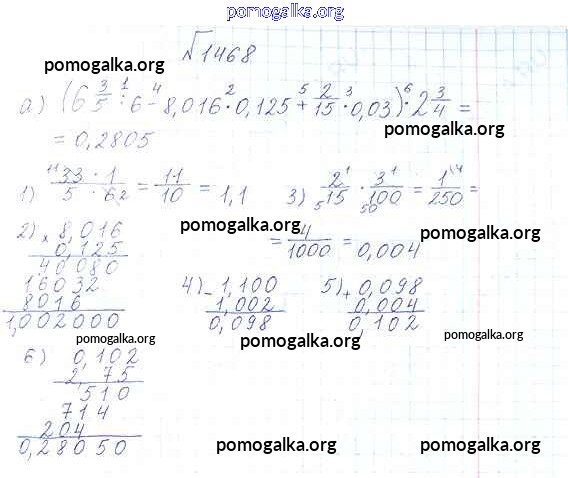 pomogalka.org
√1468
pomogalka.org
а) (6 3/5 : 6 - 8,016 · 0,125 + 2/15 · 0,03) · 2 3/4 =
pomogalka.org
= 0,2805
1) 33 · 1 / 5 · 6 = 11/10 = 1,1
3) 2/15 · 3/100 = 1/250 =
= 4/1000 = 0,004
pomogalka.org
pomogalka.org
2) × 8,016
0,125
40080
16032
8016
1,002000
4) - 1,100
1,002
0,098
5) + 0,098
0,004
0,102
pomogalka.org
pomogalka.org
pomogalka.org
6) 0,102
2,75
510
714
204
0,28050
pomogalka.org
pomogalka.org